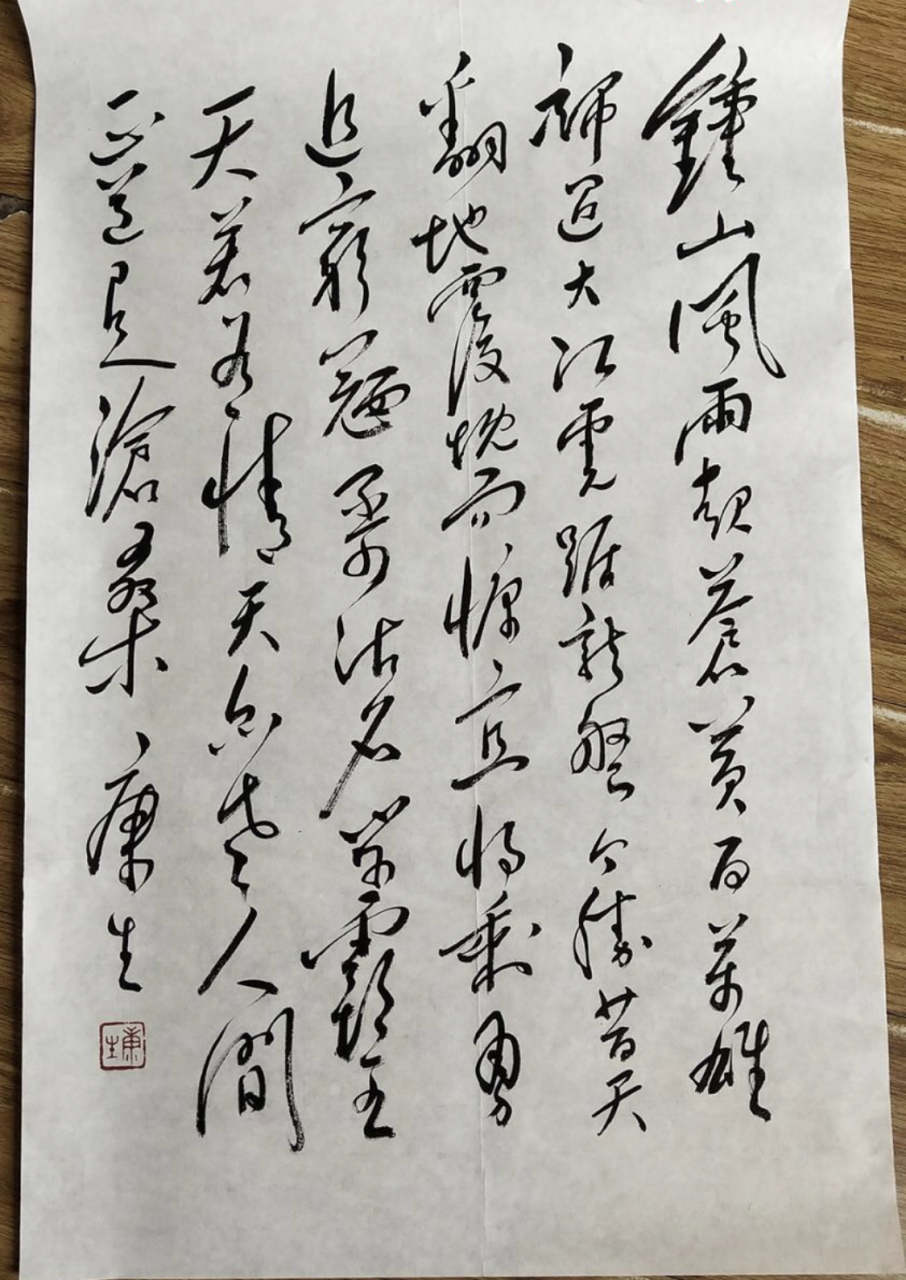 鍾山風雨起蒼黃百萬雄
師過大江虎踞龍盤今勝昔天
翻地覆慨而慷宜將剩勇
追窮寇不可沽名學霸王
天若有情天亦老人間
正道是滄桑 康生
康生